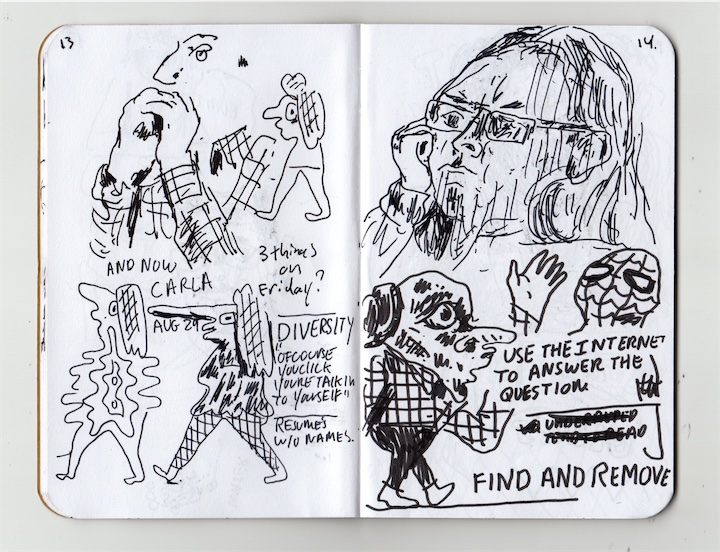 13
14.
3 things
on
Friday?
AND NOW
CARLA
AUG 29
DIVERSITY
"OFCOURSE
YOU CLICK
YOURE TALKIN
TO YOURSELF"
RESUMES
W/O NAMES.
USE THE INTERNET
TO ANSWER THE
QUESTION
FIND AND REMOVE